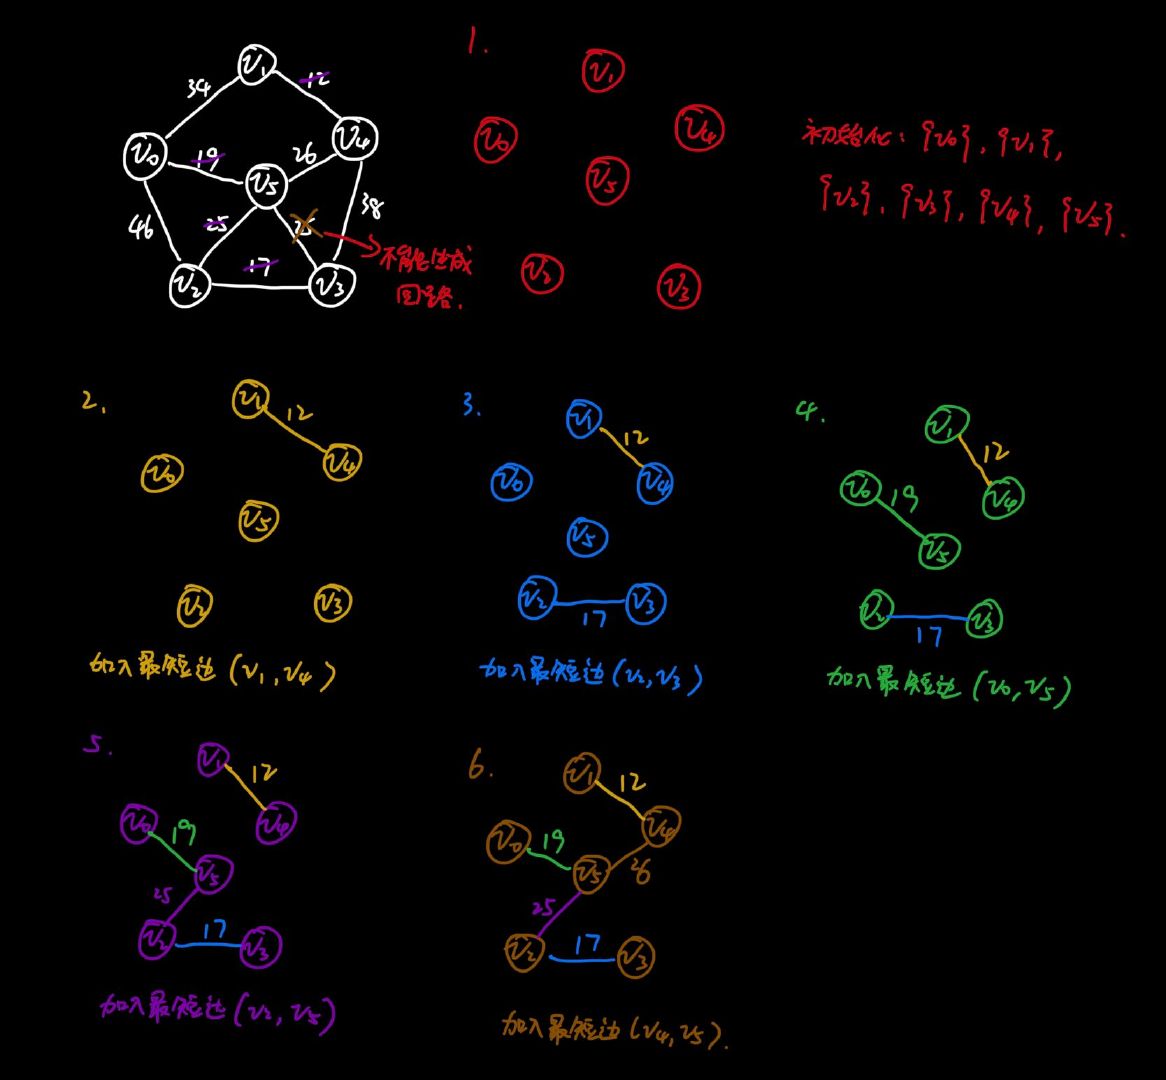 1.
v₁
34
12
v₀
19
26
v₄
v₅
46
25
25
38
17
v₂
v₃
不能生成
回路.
v₁
v₀
v₄
v₅
v₂
v₃
初始化: {v₀}, {v₁},
{v₂}, {v₃}, {v₄}, {v₅}.
2.
v₁
12
v₄
v₀
v₅
v₂
v₃
加入最短边(v₁,v₄)
3.
v₁
12
v₀
v₄
v₅
v₂
v₃
17
加入最短边(v₂,v₃)
4.
v₁
12
v₀
19
v₄
v₅
v₂
v₃
17
加入最短边(v₀,v₅)
5.
v₁
12
v₀
19
v₄
v₅
25
v₂
17
v₃
加入最短边(v₂,v₅)
6.
v₁
12
v₀
19
v₄
v₅
26
25
v₂
17
v₃
加入最短边(v₄,v₅).